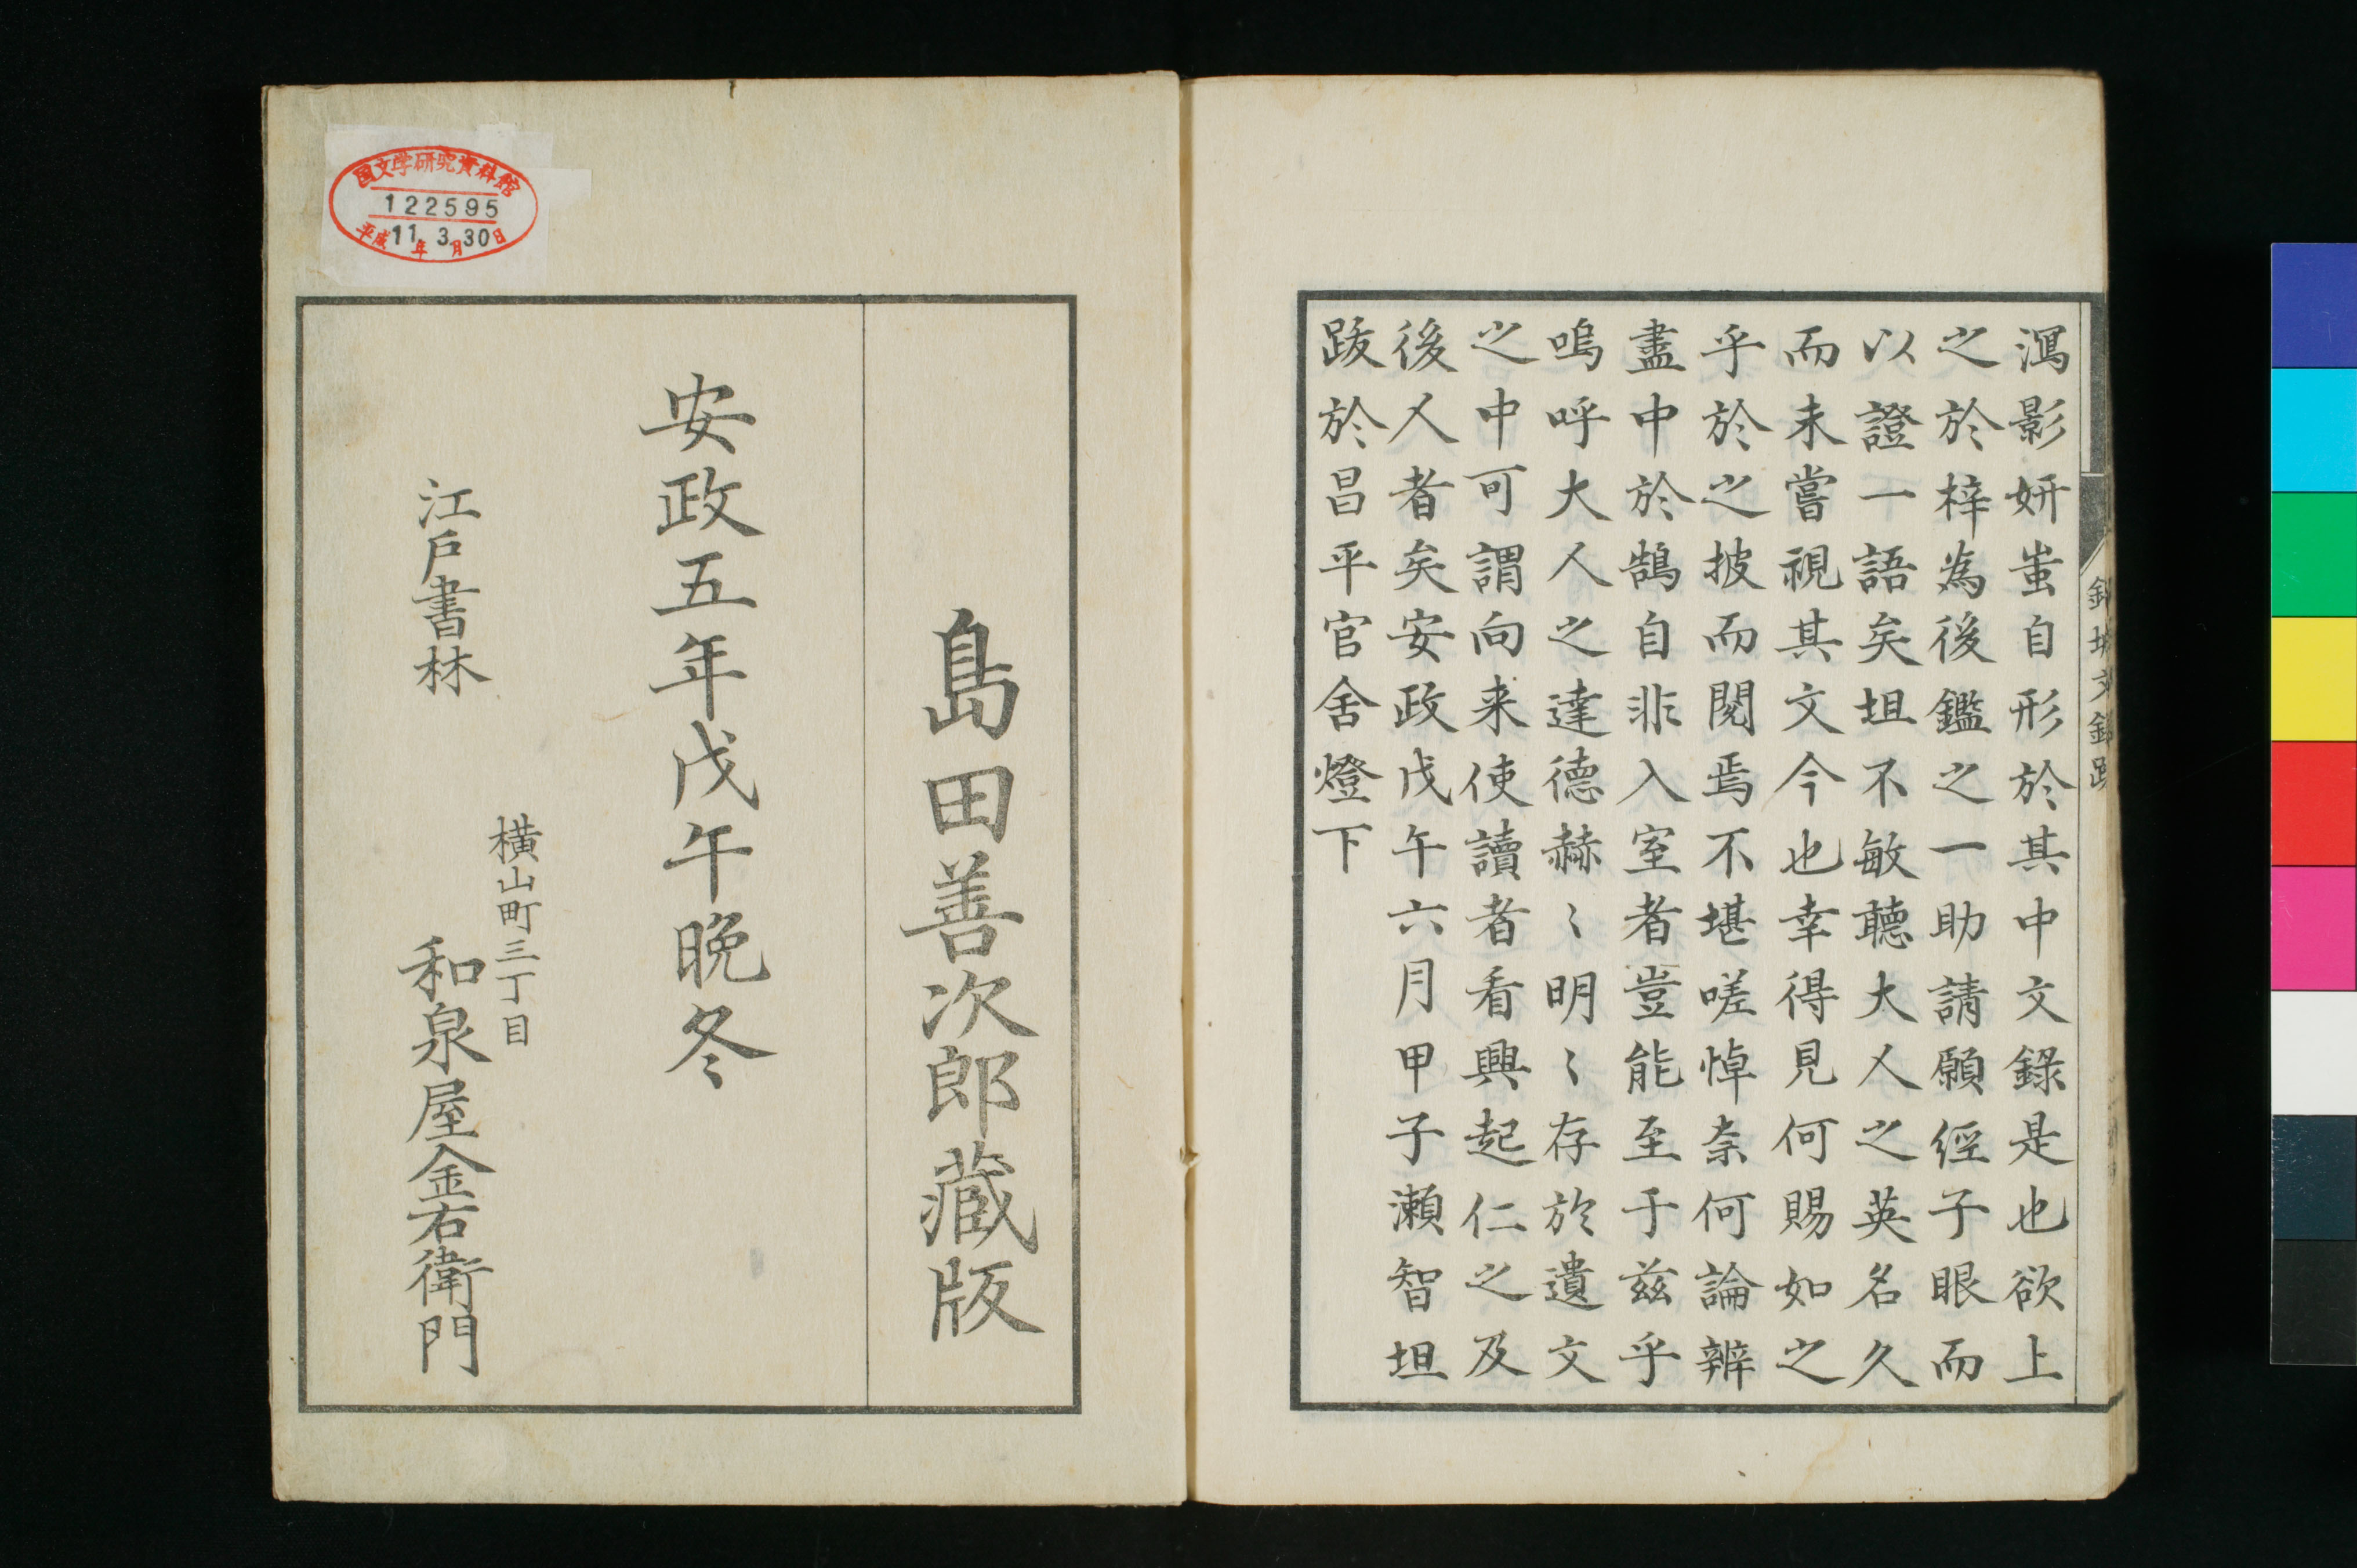 寫影妍蚩自形於其中文錄是也欲上
之於梓為後鑑之一助請願經子眼而
以證一語矣坦不敏聽大人之英名久
而未嘗視其文今也幸得見何賜如之
乎於之披而閱焉不堪嗟悼柰何論辨
盡中於鵠自非入室者豈能至于茲乎
嗚呼大人之達德赫〻明〻存於遺文
之中可謂向来使讀者看興起仁之及
後人者矣安政戊午六月甲子瀨智坦
跋於昌平官舍燈下
島田善次郎藏版
安政五年戊午晚冬
江戶書林
橫山町三丁目
和泉屋金右衛門
国文学研究資料館
122595
平成11年3月30日